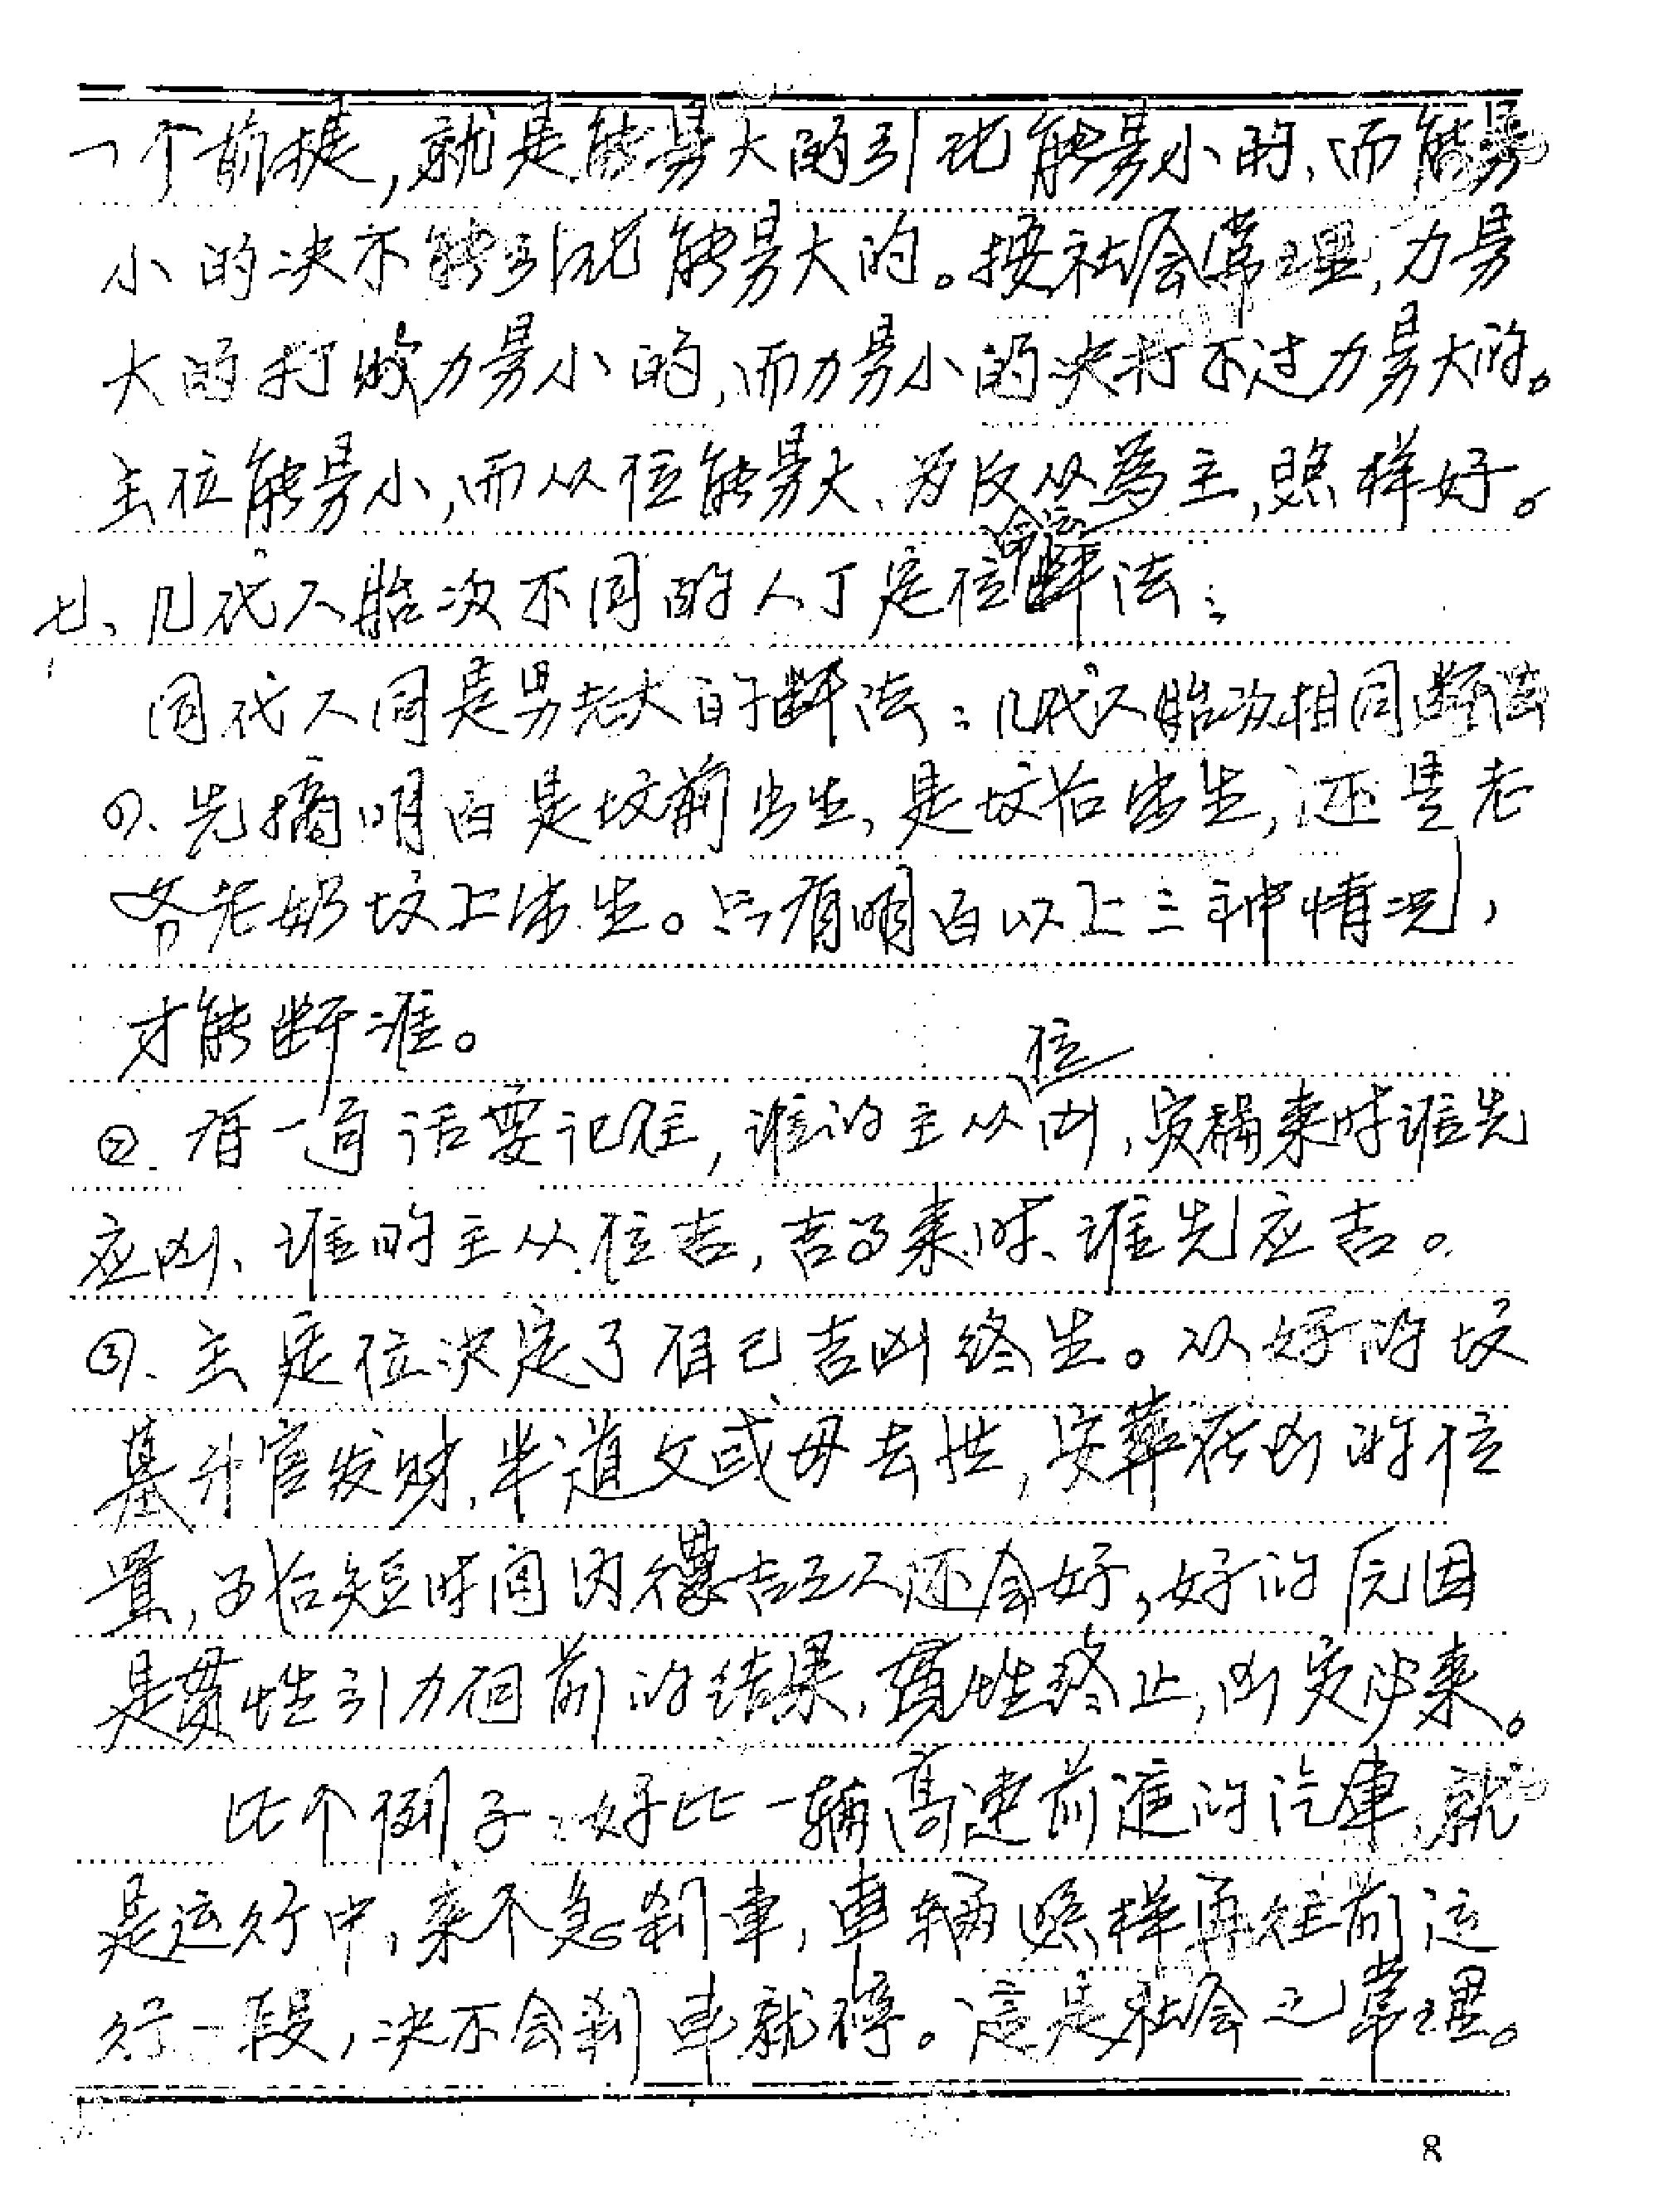 一个前提，就是能量大的引死能量小的，而能量
小的决不能引死能量大的。按社会常理，力量
大的打败力量小的，而力量小的决打不过力量大的。
主位能量小，而从位能量大、为反从为主，照样好。
七、几代人胎次不同的人丁定位断法：
同代人同是男老大的断法：几代人胎次相同断法
①、先摘明白是坟前出生，是坟后出生，还是老
爷老奶坟上出生。只有明白以上三种情况，
才能断准。
②、有一句话要记住，谁的主从位凶，灾祸来时谁先
应凶、谁的主从位吉，吉的来时、谁先应吉。
③、主定位决定了自己吉凶终生。从好的坟
墓升官发财，半道父或母去世，安葬在凶的位
置，以后短时间内得吉之人还会好，好的原因
是贯性引力向前的结果，贯性终止，凶灾即来。
比个例子：好比一辆高速前进的汽車，就
是运行中，来不急刹車，車辆照样再往前运
行一段，决不会刹車就停。這是社会之常理。
8